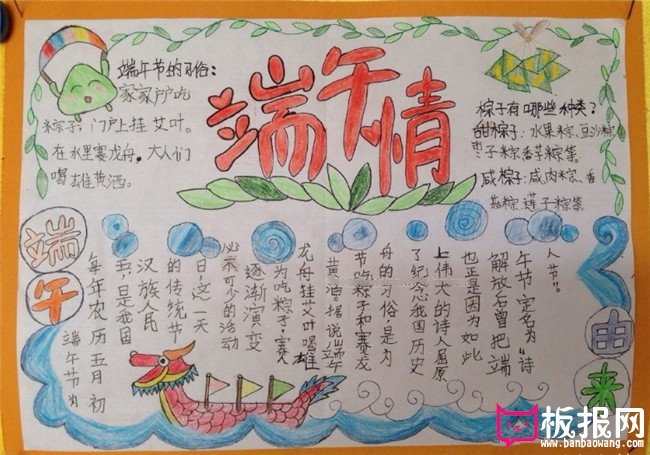 端午节的习俗：
家家户户吃
粽子，门户上挂艾叶。
在水里赛龙舟，大人们
喝雄黄酒。
端午情
粽子有哪些种类？
甜粽子：水果粽、豆沙粽
枣子粽香芋粽等。
咸粽子：咸肉粽、香
菇粽、莲子粽等。
端午
由来
端午节为
每年农历五月初
五，是我国
汉族人民
的传统节
日，这一天
必不可少的活动
逐渐演变
为吃粽子，赛
龙舟挂艾叶喝雄
黄酒。据说端午
节吃粽子和赛龙
舟的习俗是为
了纪念我国历史
上伟大的诗人屈原
也正是因为如此
解放后曾把端
午节定名为“诗
人节。
板报网
www.banbaowang.com